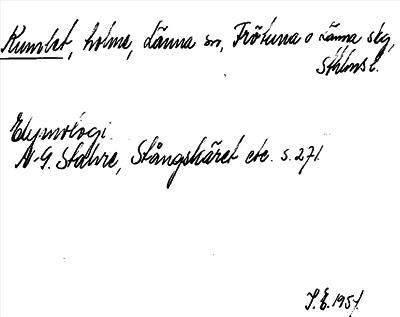 Kumlet, holme, Länna sn, Frötuna o Länna skg,
Sthlms l.
Etymologi.
N-G. Stahre, Stångskäret etc. s. 271.
S.E. 1957.